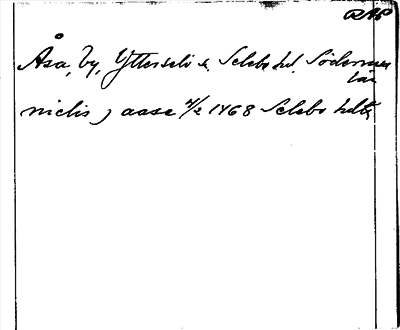 RAP
Åsa, by, Ytterselö s. Selebo hd. Söderman
län
niclis j aasa 4/2 1468 Selebo hdtr